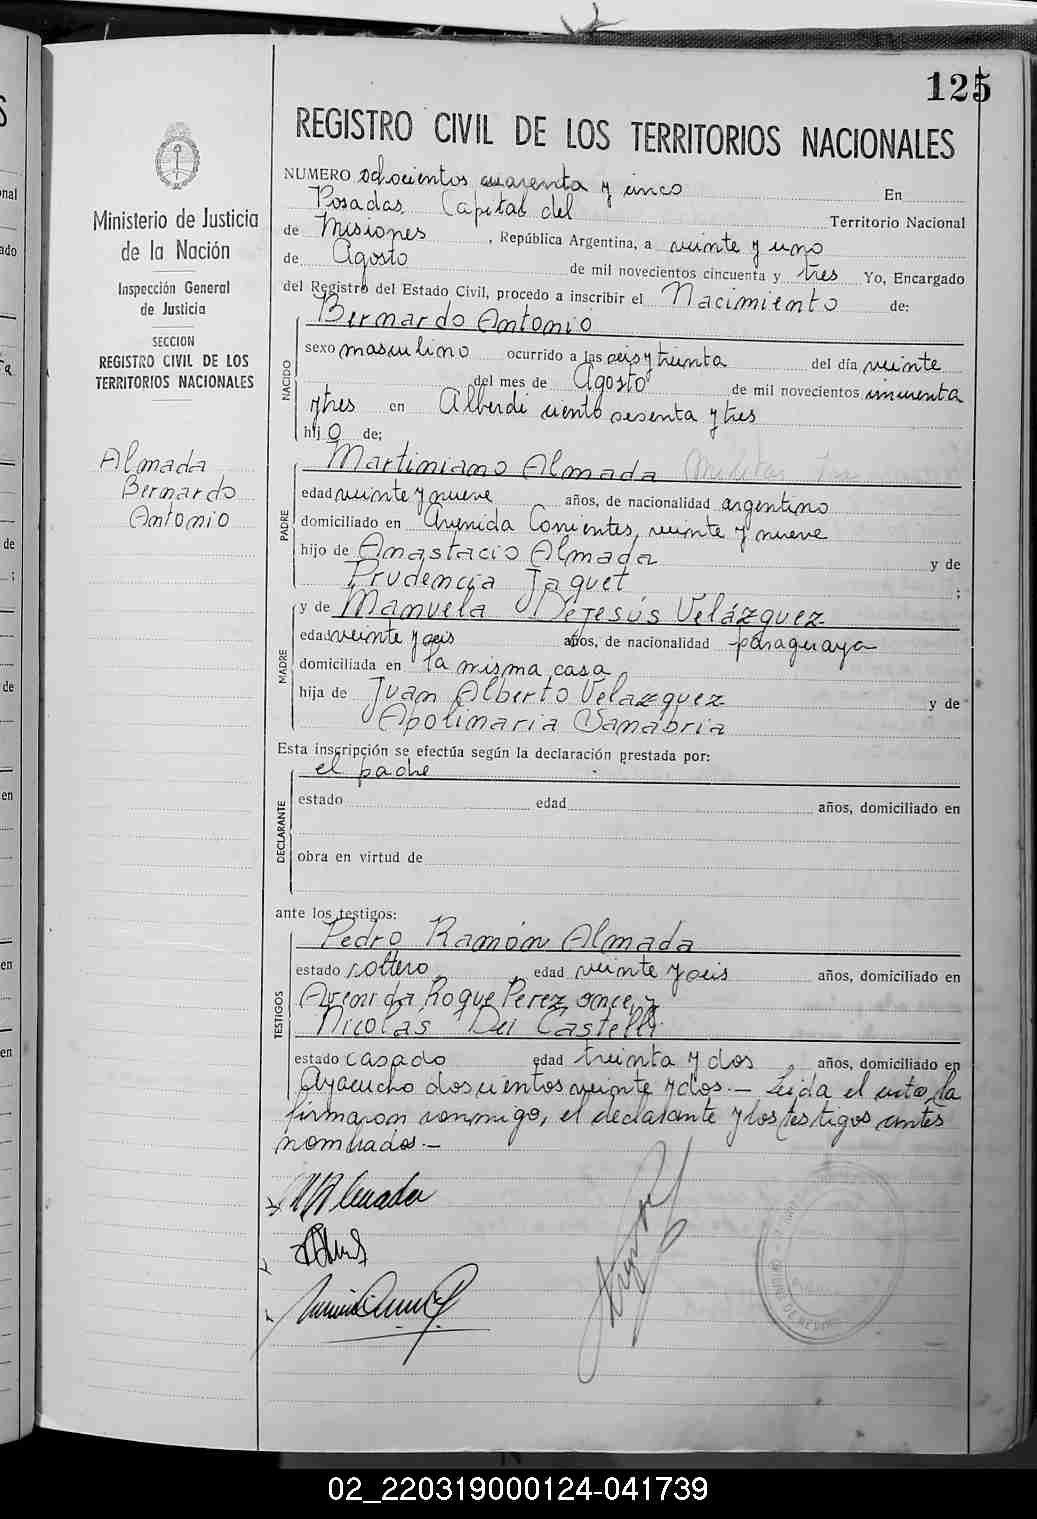 125
REGISTRO CIVIL DE LOS TERRITORIOS NACIONALES
Ministerio de Justicia
de la Nación
Inspección General
de Justicia
SECCION
REGISTRO CIVIL DE LOS
TERRITORIOS NACIONALES
Almada
Bernardo
Antonio
NUMERO ochocientos cuarenta y cinco En
Posadas Capital del Territorio Nacional
de Misiones, República Argentina, a veinte y uno
de Agosto de mil novecientos cincuenta y tres Yo, Encargado
del Registro del Estado Civil, procedo a inscribir el Nacimiento de:
NACIDO
Bernardo Antonio
sexo masculino ocurrido a las seis y treinta del día veinte
del mes de Agosto de mil novecientos cincuenta
y tres en Alberdi ciento sesenta y tres
hij o de;
PADRE
Martiniano Almada
edad veinte y nueve años, de nacionalidad argentino
domiciliado en Avenida Corrientes, veinte y nueve
hijo de Anastacio Almada y de
Prudencia Jaquet ;
MADRE
y de Manuela Dejesús Velázquez
edad veinte y seis años, de nacionalidad paraguaya
domiciliada en la misma casa
hija de Juan Alberto Velazquez y de
Apolinaria Sanabria
Esta inscripción se efectúa según la declaración prestada por:
DECLARANTE
el padre
estado edad años, domiciliado en
obra en virtud de
ante los testigos:
TESTIGOS
Pedro Ramón Almada
estado soltero, edad veinte y seis años, domiciliado en
Avenida Roque Perez once, y
Nicolás Dei Castelli
estado casado edad treinta y dos, años, domiciliado en
Ayacucho doscientos veinte y dos.— Leida el acta, la
firmaron conmigo, el declarante y los testigos antes
nombrados.—
02_220319000124-041739